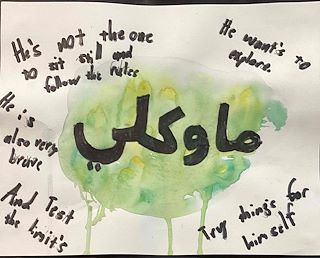 He's not the one
to sit still and
follow the rules
He want's to
explore.
ماوكلي
He is
also very
breive
And Test
the limit's
Try thing's for
himself